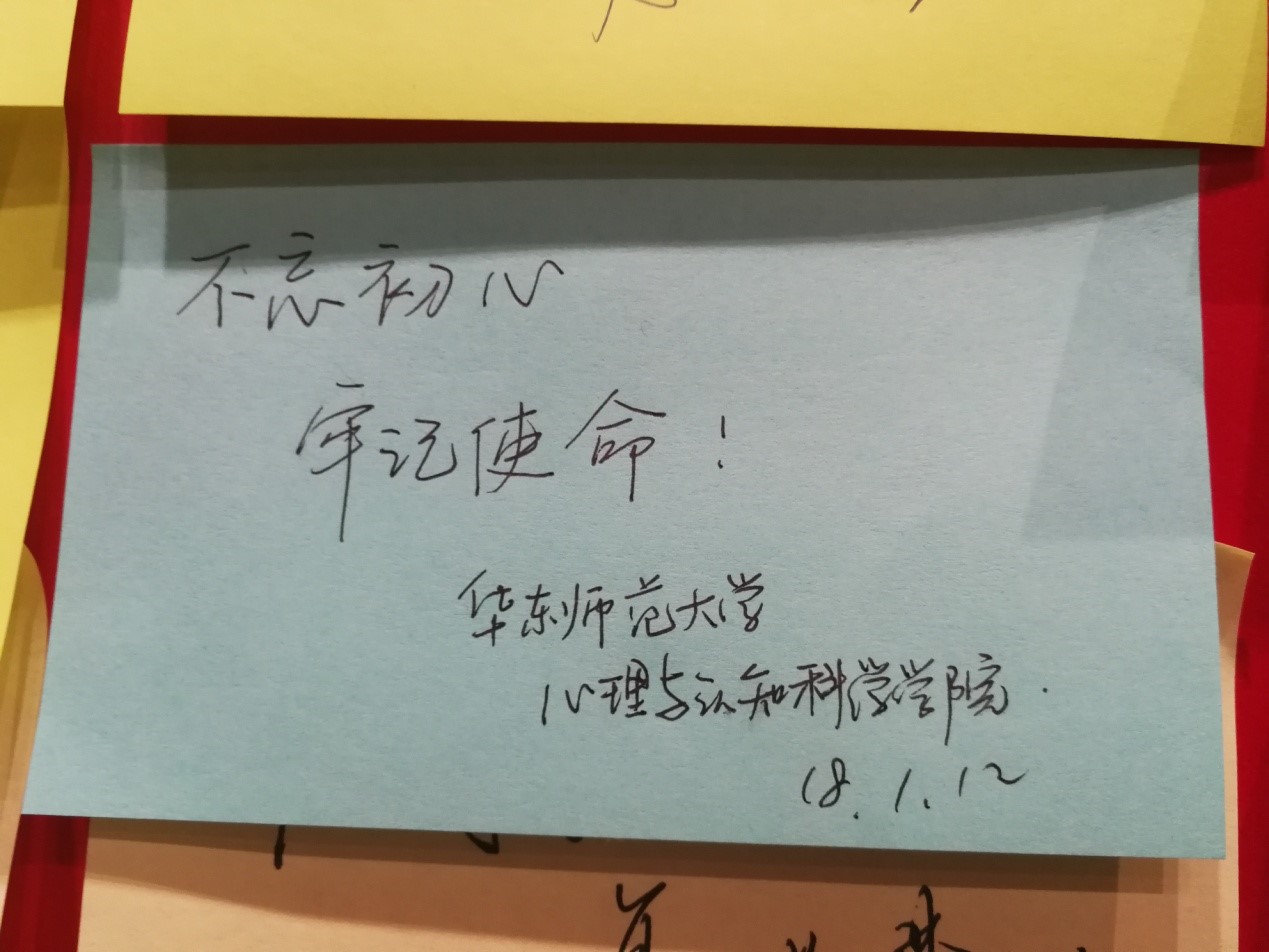 不忘初心
牢记使命！
华东师范大学
心理与认知科学学院.
18.1.12